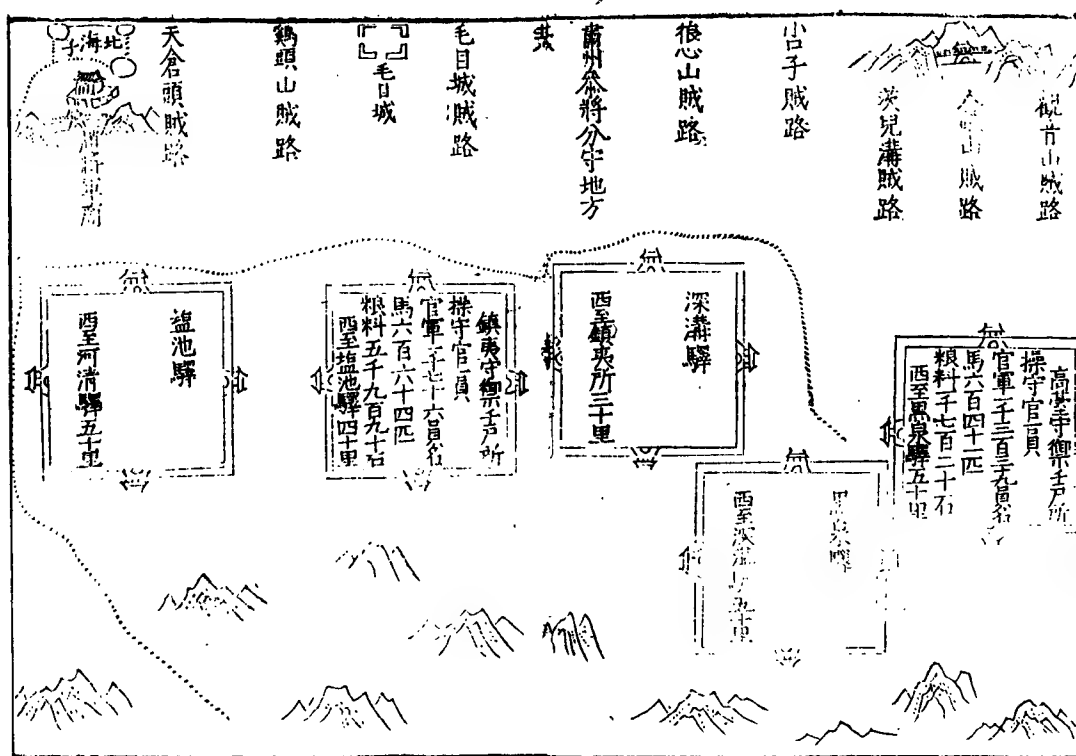 觀音山賊路
合黎山賊路
茨兒溝賊路
小口子賊路
狼心山賊路
肅州叅將分守地方
毛目城賊路
毛目城
鷄頭山賊路
天倉頭賊路
北海子
將軍廟
高臺守禦千戶所
操守官一員
官軍一千三百三十九員名
馬六百四十一匹
粮料一千七百二十石
西至黑泉驛五十里
黑泉驛
西至深溝驛五十里
深溝驛
西至鎮夷所三十里
鎮夷守禦千戶所
操守官一員
官軍一千七十六員名
馬六百六十四匹
粮料五千九百九十石
西至塩池驛四十里
塩池驛
西至河清驛五十里